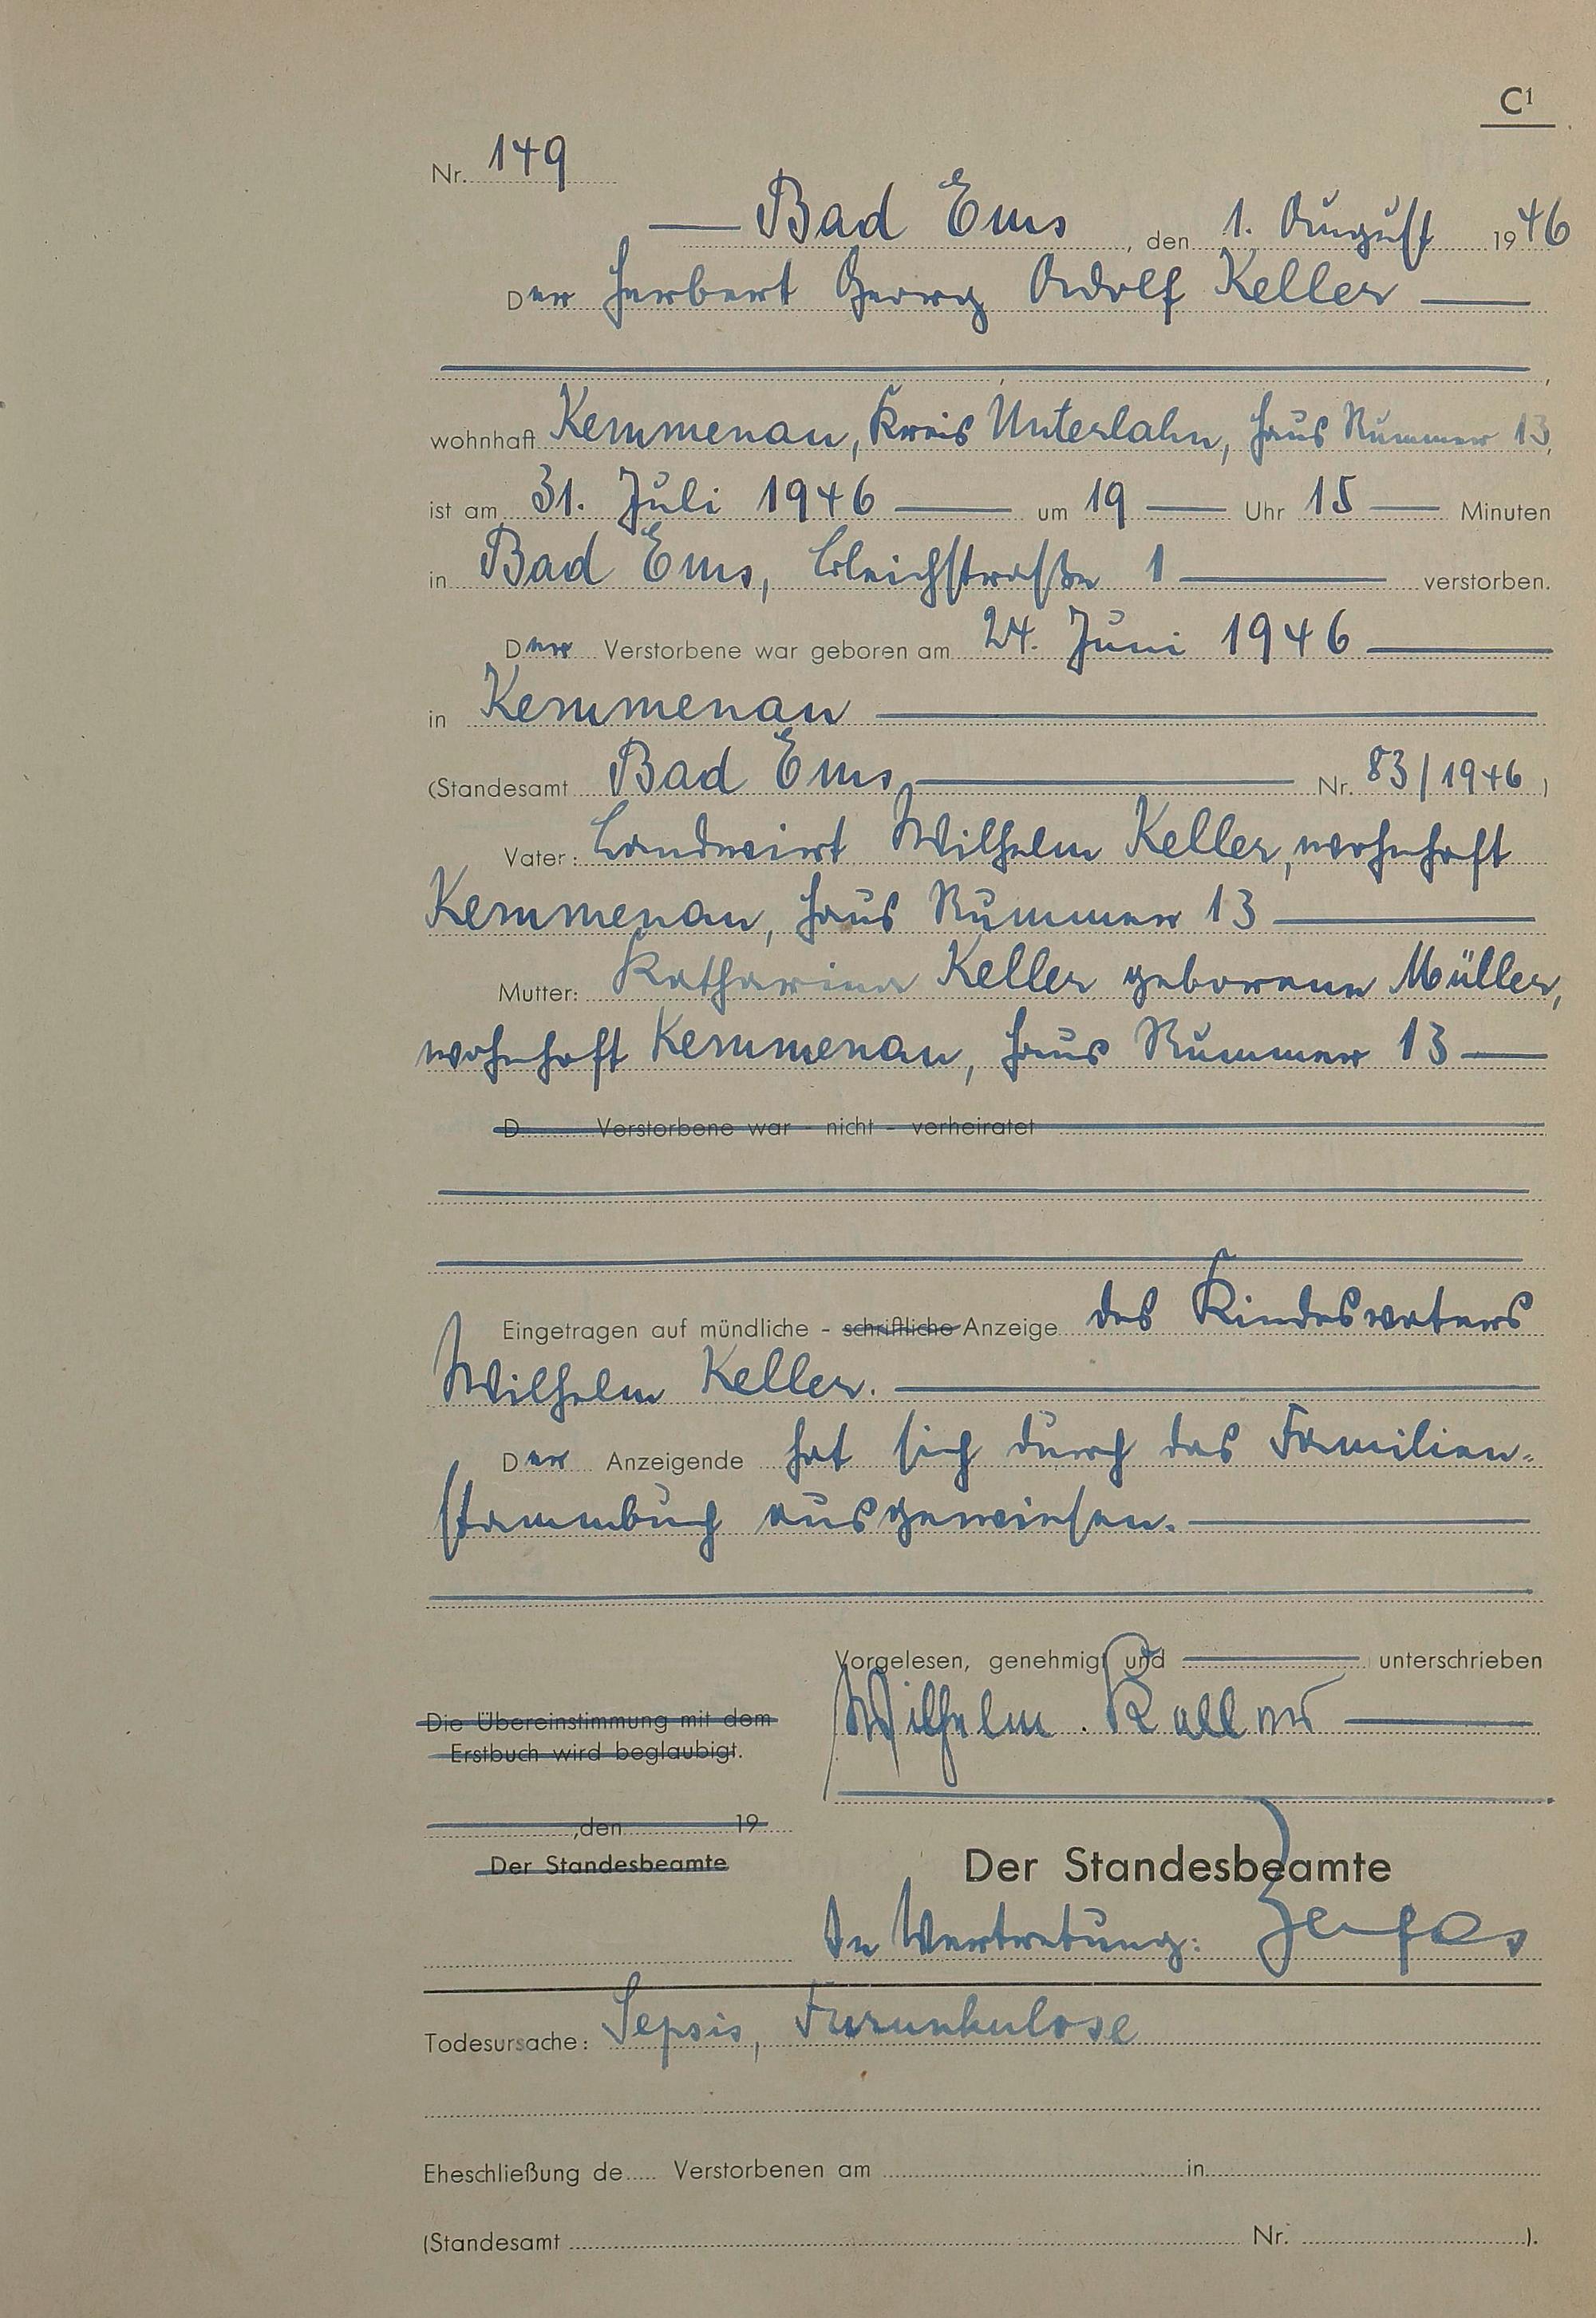 C1
Nr. 149
Bad Ems, den 1. August 1946
Der Herbert Georg Adolf Keller
wohnhaft Kemmenau, Kreis Unterlahn, Haus Nummer 13,
ist am 31. Juli 1946 um 19 Uhr 15 Minuten
in Bad Ems, Bleichstraße 1 verstorben.
Der Verstorbene war geboren am 24. Juni 1946
in Kemmenau
(Standesamt Bad Ems Nr. 83/1946)
Vater: Landwirt Wilhelm Keller, wohnhaft
Kemmenau, Haus Nummer 13
Mutter: Katharina Keller geborene Müller,
wohnhaft Kemmenau, Haus Nummer 13
D Verstorbene war - nicht - verheiratet
Eingetragen auf mündliche - schriftliche Anzeige des Kindesvaters
Wilhelm Keller.
Der Anzeigende hat sich durch das Familien=
stammbuch ausgewiesen.
Vorgelesen, genehmigt und unterschrieben
Wilhelm Keller
Die Übereinstimmung mit dem
Erstbuch wird beglaubigt.
, den 19
Der Standesbeamte
Der Standesbeamte
In Vertretung:
Todesursache: Sepsis, Furunkulose
Eheschließung de Verstorbenen am in
(Standesamt Nr. ).